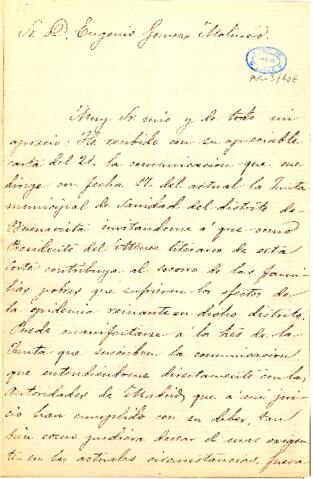 Sr. D. Eugenio Gomez Molinero.
Muy Sr. mio y de todo mi
aprecio: He recibido con su apreciable
carta del 21. la comunicacion que me
dirige con fecha 17. del actual la Junta
municipal de Sanidad del distrito de
Buenavista invitandome a que como
Presidente del Ateneo literario de esta
Corte contribuya al socorro de las fami
lias pobres que sufrieren los efectos de
la epidemia reinante en dicho distrito.
Puede manifestarse a los tres de la
Junta que suscriben la comunicacion
que entendiendome directamente con las
Autoridades de Madrid, que a mi jui
cio han cumplido con su deber, tan
bien como pudiera desear el mas exigen
te en las actuales circunstancias, fuera